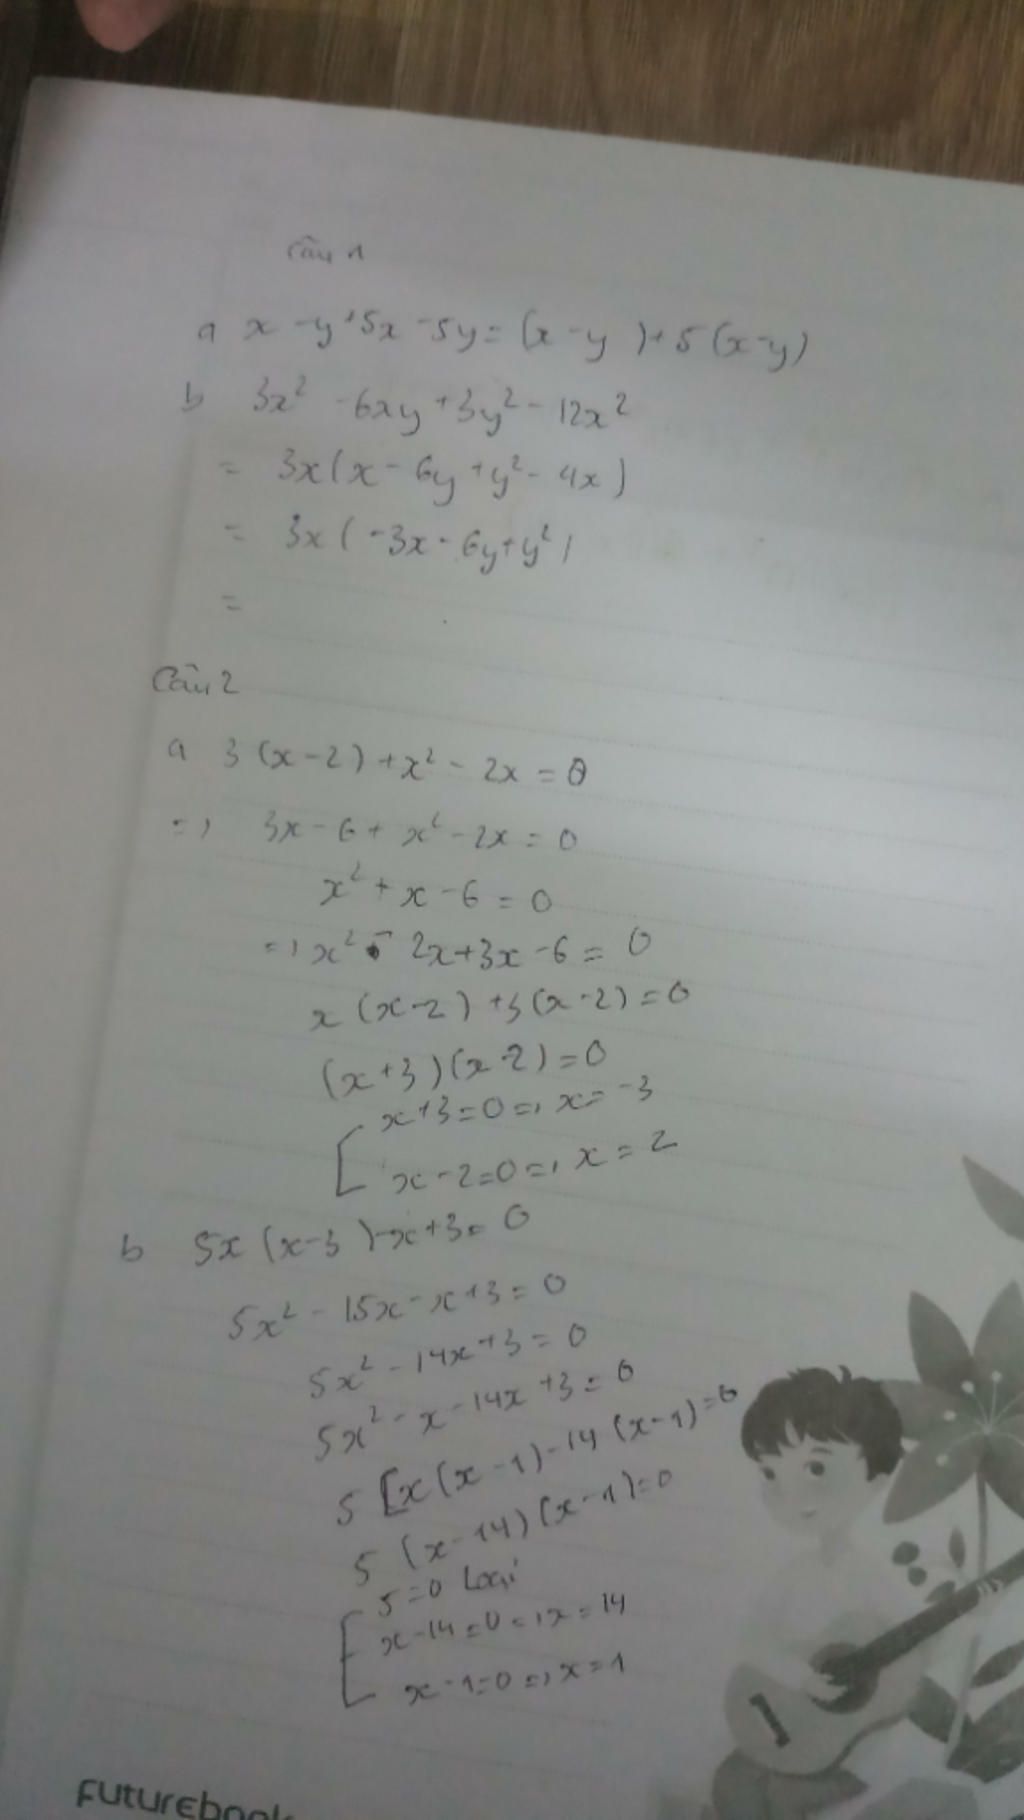 Câu 1
a x - y + 5x - 5y = (x - y) + 5(x - y)
b 3x² - 6xy + 3y² - 12x²
= 3x(x - 6y + y² - 4x)
= 3x(-3x - 6y + y²)
=
Câu 2
a 3(x-2) + x² - 2x = 0
=> 3x - 6 + x² - 2x = 0
x² + x - 6 = 0
=> x² - 2x + 3x - 6 = 0
x(x-2) + 3(x-2) = 0
(x+3)(x-2) = 0
x+3=0 => x = -3
x-2=0 => x = 2
b 5x(x-3) - x + 3 = 0
5x² - 15x - x + 3 = 0
5x² - 14x + 3 = 0
5x² - x - 14x + 3 = 0
5[x(x-1) - 14(x-1) = 0
5(x-14)(x-1) = 0
5=0 Loại
x-14=0 => x=14
x-1=0 => x=1
1
FUTUREbook